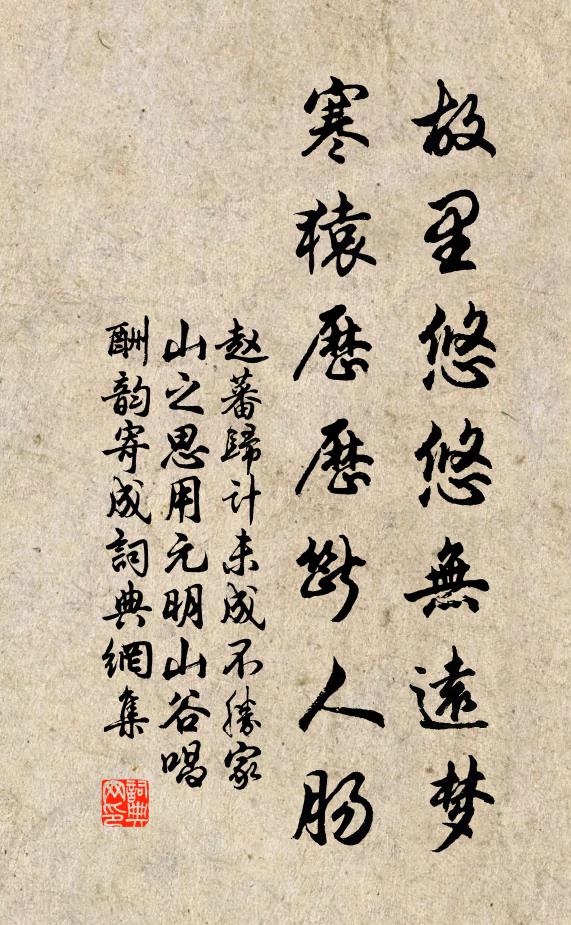 故里悠悠無遠梦
寒猿歷歷斷人肠
赵蕃歸计未成不勝家
山之思用元明山谷唱
酬韵寄成詞典網集
詞典網印